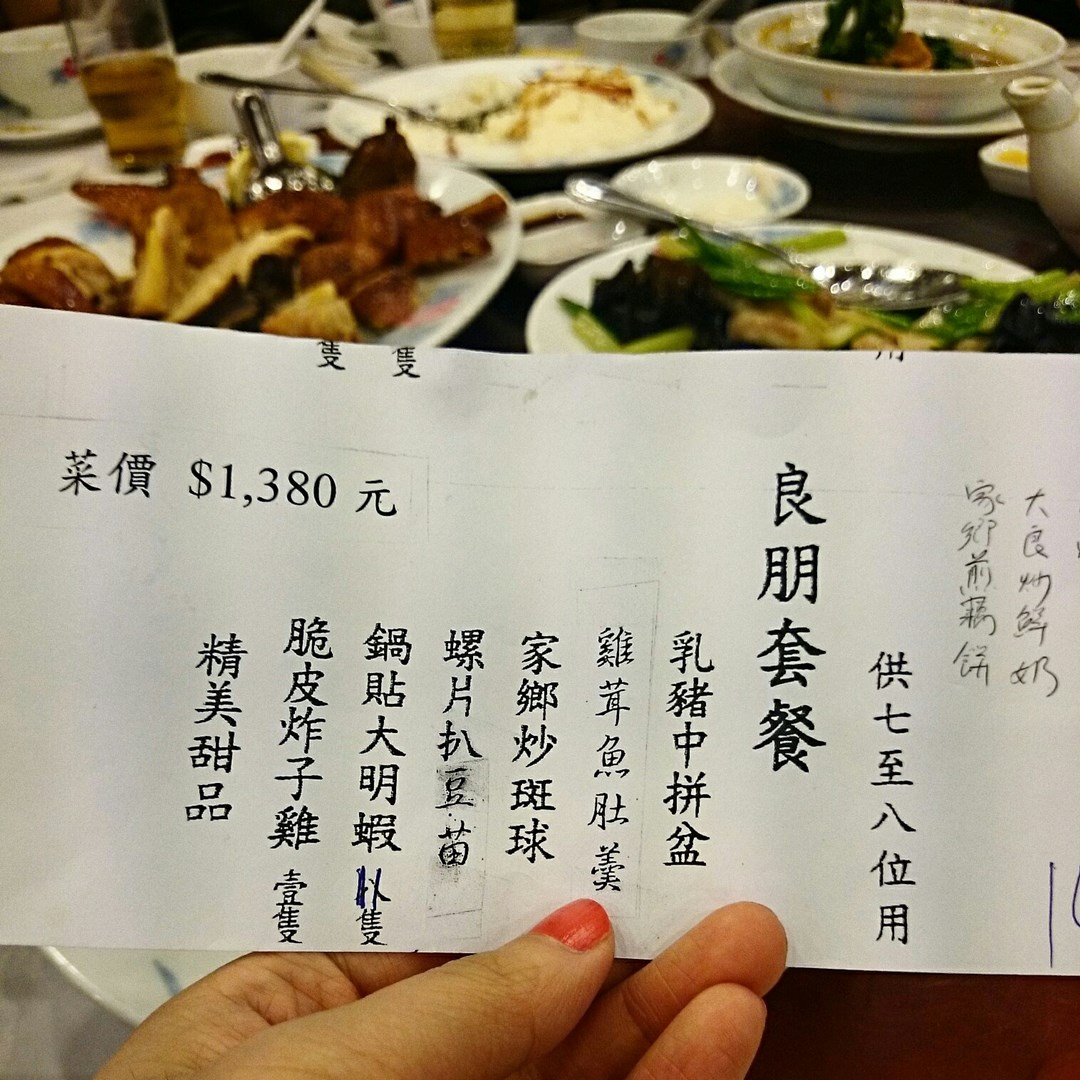 大良炒鮮奶
家鄉煎藕餅
供七至八位用
良朋套餐
乳豬中拼盆
雞茸魚肚羹
家鄉炒斑球
螺片扒豆苗
鍋貼大明蝦 隻
脆皮炸子雞 壹隻
精美甜品
菜價 $1,380 元
隻
隻